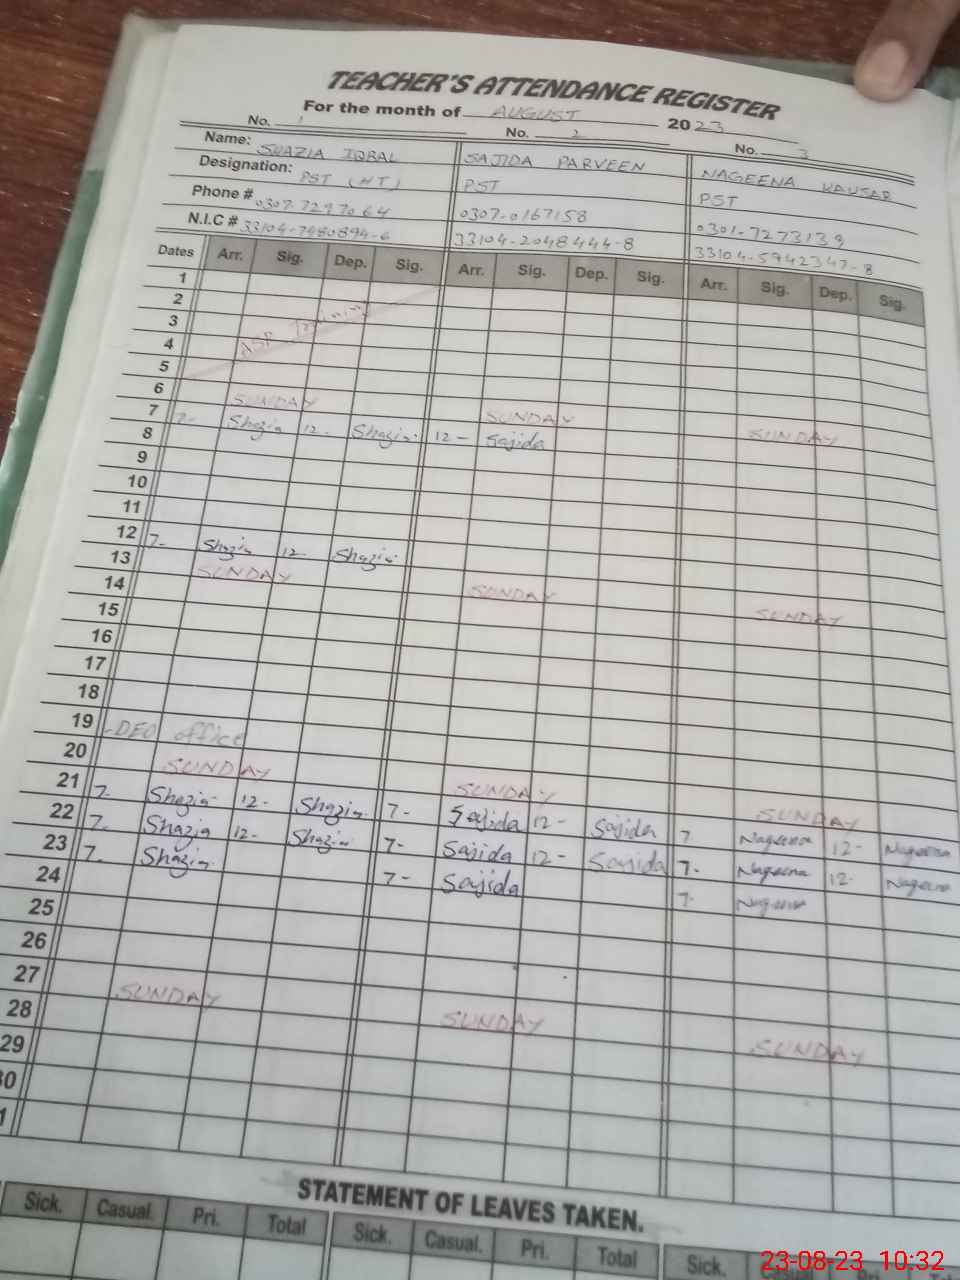 TEACHER'S ATTENDANCE REGISTER
For the month of AUGUST 2023
No. 1 No. 2 No. 3
Name: SHAZIA IQBAL SAJIDA PARVEEN NAGEENA KAUSAR
Designation: PST (HT) PST PST
Phone # 0307-7297064 0307-0167158 0301-7273139
N.I.C # 33104-7480894-6 33104-2048444-8 33104-5942347-8
Dates Arr. Sig. Dep. Sig. Arr. Sig. Dep. Sig. Arr. Sig. Dep. Sig.
1
2
3
4 Training
5
6 SUNDAY SUNDAY SUNDAY
7 7- Shazia 12- Shazia 12- Sajida
8
9
10
11
12 7- Shazia 12- Shazia
13 SUNDAY SUNDAY SUNDAY
14
15
16
17
18
19 -DEO office
20 SUNDAY SUNDAY SUNDAY
21 7- Shazia 12- Shazia 7- Sajida 12- Sajida 7- Nageena 12- Nageena
22 7- Shazia 12- Shazia 7- Sajida 12- Sajida 7- Nageena 12- Nageena
23 7- Shazia 7- Sajida 7- Nageena
24
25
26
27 SUNDAY SUNDAY SUNDAY
28
29
30
1
STATEMENT OF LEAVES TAKEN.
Sick. Casual. Pri. Total Sick. Casual. Pri. Total Sick.
23-08-23 10:32